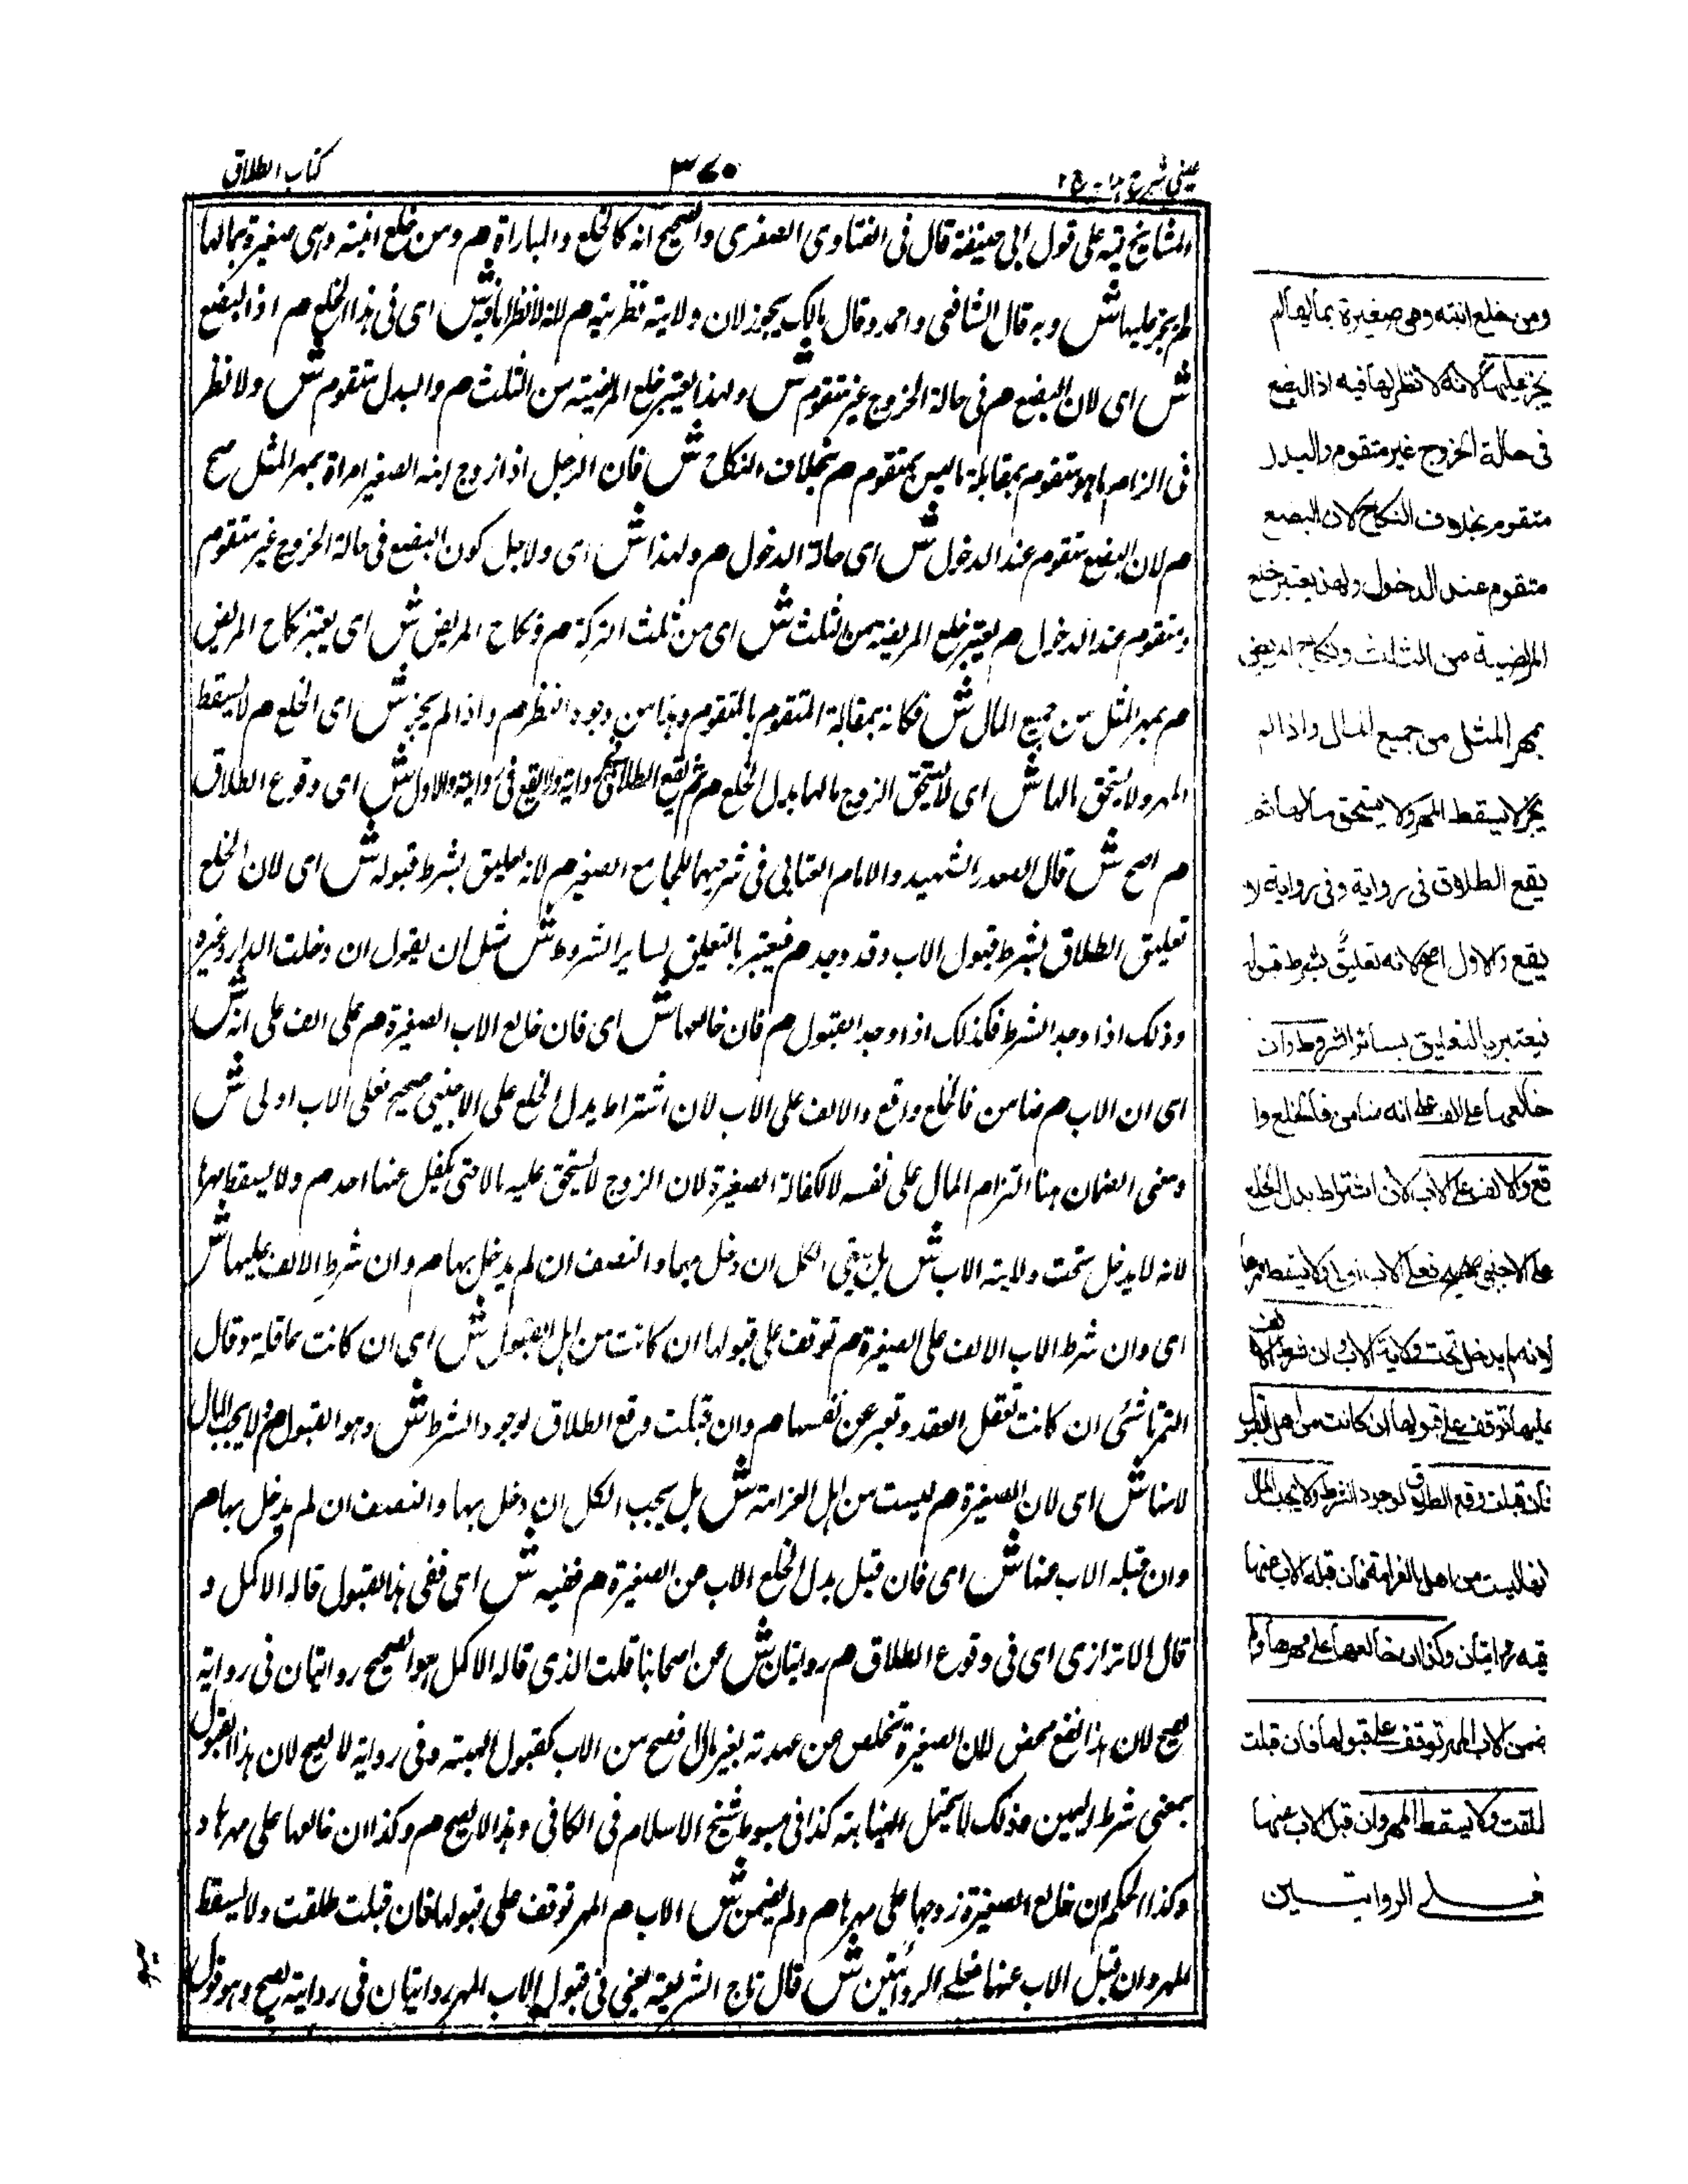 عینی شرح ہدایہ ج ۲
۳۷۰
کتاب الطلاق
المشایخ فیه علی قول ابی حنیفة قال فی الفتاوی الصغری والصحیح انه کالخلع والمباراة هم ومن خلع ابنته وهی صغیرة بمالها
لم یجز علیها ش وبه قال الشافعی واحمد وقال مالک یجوز لان ولایته نظریة هم لانه لا نظر لها فیه ش ای فی هذا الخلع هم اذ البضع
ش ای لان البضع هم فی حالة الخروج غیر متقوم ش ولهذا یعتبر خلع المریضة من الثلث هم والبدل متقوم ش ولا نظر
فی الزام ما هو متقوم بمقابلة ما لیس بمتقوم هم بخلاف النکاح ش فان الرجل اذا زوج ابنه الصغیر امراة بمهر المثل صح
هم لان البضع متقوم عند الدخول ش ای حالة الدخول هم ولهذا ش ای ولاجل کون البضع فی حالة الخروج غیر متقوم
ومتقوم عند الدخول هم یعتبر خلع المریضة من الثلث ش ای من ثلث الترکة هم ونکاح المریض ش ای یعتبر نکاح المریض
هم بمهر المثل من جمیع المال ش فکانه بمقابلة المتقوم بالمتقوم وهذا من وجود النظر هم واذا لم یجز ش ای الخلع هم لا یسقط
المهر ولا یستحق مالها ش ای لا یستحق الزوج مالها بدل الخلع هم ثم یقع الطلاق فی روایة ولا یقع فی روایة والاول ش ای وقوع الطلاق
هم اصح ش قال الصدر الشهید والامام العتابی فی شرحیهما للجامع الصغیر هم لانه تعلیق بشرط قبوله ش ای لان الخلع
تعلیق الطلاق بشرط قبول الاب وقد وجد هم فیعتبر بالتعلیق بسایر الشروط ش مثل ان یقول ان دخلت الدار وغیره
وذلک اذا وجد الشرط فکذلک اذا وجد القبول هم فان خالعها ش ای فان خالع الاب الصغیرة هم علی الف علی انه ش
ای ان الاب هم ضامن فالخلع واقع والالف علی الاب لان اشتراط بدل الخلع علی الاجنبی صحیح فعلی الاب اولی ش
ومعنی الضمان هنا التزام المال علی نفسه لا کفالة الصغیرة لان الزوج لا یستحق علیه مالا حتی یکفل عنها احد هم ولا یسقط مهرها
لانه لا یدخل تحت ولایة الاب ش بل یبقی الکل ان دخل بها والنصف ان لم یدخل بها هم وان شرط الالف علیها ش
ای وان شرط الاب الالف علی الصغیرة هم توقف علی قبولها ان کانت من اهل القبول ش ای ان کانت عاقلة وقال
التمرتاشی ان کانت تعقل العقد وتعبر عن نفسها هم وان قبلت وقع الطلاق لوجود الشرط ش وهو القبول هم ولا یجب المال
لانها ش ای لان الصغیرة هم لیست من اهل الغرامة ش بل یجب الکل ان دخل بها والنصف ان لم یدخل بها هم
وان قبله الاب عنها ش ای فان قبل بدل الخلع الاب عن الصغیرة هم ففیه ش ای ففی هذا القبول قاله الاکمل و
قال الاترازی ای فی وقوع الطلاق هم روایتان ش عن اصحابنا قلت الذی قاله الاکمل هو الصحیح روایتان فی روایة
یصح لان هذا نفع محض لان الصغیرة تخلص عن عهدته بغیر مال فصح من الاب کقبول الهبة وفی روایة لا یصح لان هذا القبول
بمعنی شرط الیمین وذلک لا یحتمل النیابة کذا فی مبسوط شیخ الاسلام فی الکافی وهذا لا یصح هم وکذا ان خالعها علی مهرها و
وکذا الحکم ان خالع الصغیرة زوجها علی مهرها هم ولم یضمن ش الاب هم المهر توقف علی قبولها فان قبلت طلقت ولا یسقط
المهر وان قبل الاب عنها فعلی الروایتین ش قال تاج الشریعة یعنی فی قبول الاب المهر روایتان فی روایة یصح وهو قول
ومن خلع ابنته وهی صغیرة بمالها لم
یجز علیها لانه لا نظر لها فیه اذ البضع
فی حالة الخروج غیر متقوم والبدل
متقوم بخلاف النکاح لان البضع
متقوم عند الدخول ولهذا یعتبر خلع
المریضة من الثلث ونکاح المریض
بمهر المثل من جمیع المال واذا لم
یجز لا یسقط المهر ولا یستحق مالها ثم
یقع الطلاق فی روایة وفی روایة لا
یقع والاول اصح لانه تعلیق بشرط قبوله
فیعتبر بالتعلیق بسائر الشروط وان
خالعها علی الف علی انه ضامن فالخلع وا
قع والالف علی الاب لان اشتراط بدل الخلع
علی الاجنبی صحیح فعلی الاب اولی ولا یسقط مهرها
لانه لم یدخل تحت ولایة الاب وان شرط الالف
علیها توقف علی قبولها ان کانت من اهل القبول
فان قبلت وقع الطلاق لوجود الشرط ولا یجب المال
لانها لیست من اهل الغرامة فان قبله الاب عنها
ففیه روایتان وکذا ان خالعها علی مهرها ولم
یضمن الاب المهر توقف علی قبولها فان قبلت
طلقت ولا یسقط المهر وان قبل الاب عنها
فعلی الروایتین